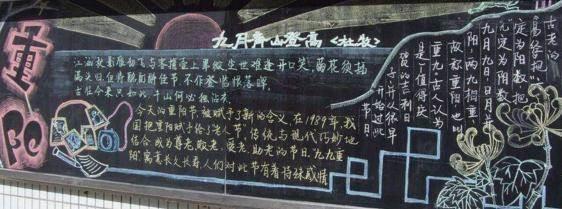 重阳
九月齐山登高 <杜牧>
江涵秋影雁初飞与客携壶上翠微尘世难逢开口笑,菊花须插
满头归但将酩酊酬佳节不作登临恨落晖
古往今来只如此,牛山何必独沾衣
今天的重阳节,被赋予了新的含义,在1989年,我
国把重阳赋予给了“老人节”传统与现代巧妙地
结合,成为尊老、敬老、爱老、助老的节日,九九重
阳”寓意长久长寿,人们对此节有着特殊感情
古老的
易经把
定为阴数,把
九定为阳数,
九月九日,日月并
阳,两九相重,
故称重阳,也叫
重九。古人认为
是个值得庆
贺的吉利日
子,并从很早
开始过此
节日